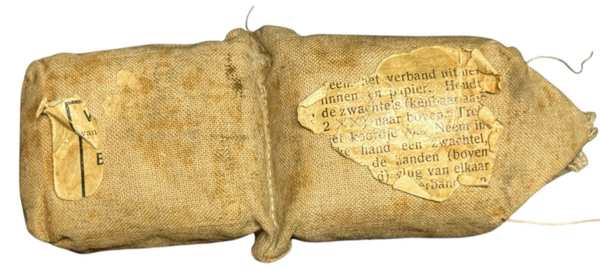 V
van
E
Neem het verband uit het
linnen en papier. Houdt
de zwachtels (kenbaar aan
2 XX) naar boven. Tre
het koordje Neem in
ke hand een zwachtel,
de handen (boven
d) vlug van elkaar
erban